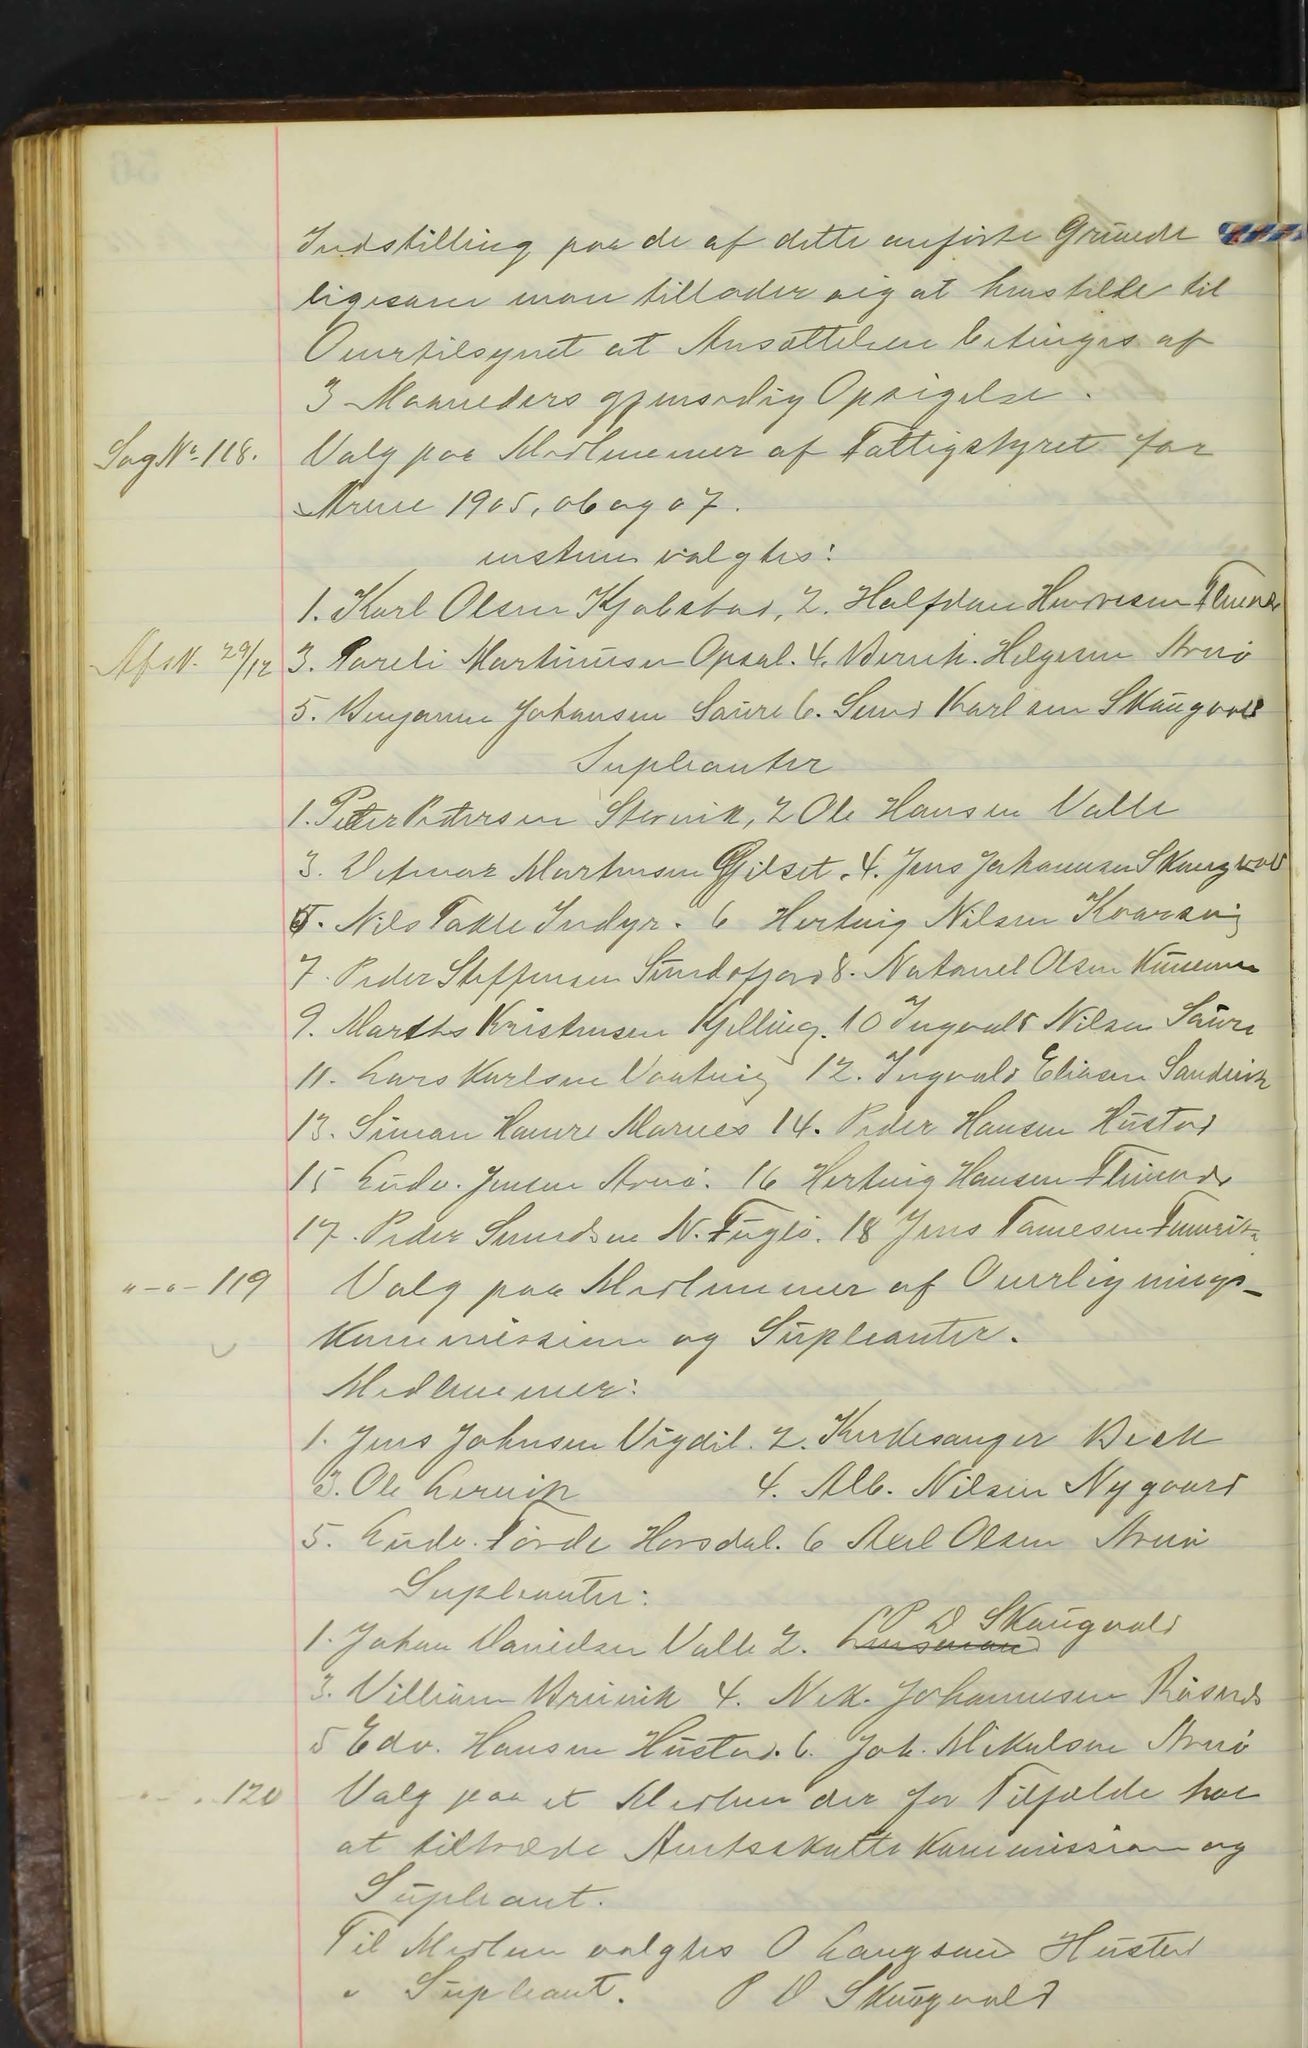 Indstilling paa de af dette anførte Grunde
ligesom man tillader sig at henstille til
Overtilsynet at Ansættelsen betinges af
3 Maaneders gjensidig Opsigelse.
Sag No 118. Valg paa Medlemmer af Fattigstyret for
Aarene 1905, 06 og 07.
enstem valgtes:
1. Karl Olsen Kjølstad, 2. Halfdan Henriksen
Afsk. 29/12 3. Pareli Martinusen Opsal. 4. Bernh. Helgesen Arnø
5. Benjamin Johansen Saura 6. Sund Karlsen Skaugvold
Supleanter
1. Peder Petersen Storvik, 2 Ole Hansen Valle
3. Ditmar Martinsen Gjilset. 4. Jens Johannesen Skaugvold
5. Nils Takle Indyr. 6 Hertvig Nilsen Kvarsvig
7. Peder Steffensen Sundsfjord 8. Natanel Olsen
9. Marths Kristensen Kjelling. 10 Ingvald Nilsen Saura
11. Lars Karlsen Vaatvig 12. Ingvald Eliasen Sandvik
13. Siman Hamre Marnes 14. Peder Hansen Hustad
15 Ludv. Jensen Arnø. 16 Hertvig Hansen
17. Peder Sundsen N. Fuglø. 18 Jens
"-"- 119 Valg paa Medlemmer af Overlignings-
kommission og Supleanter.
Medlemmer:
1. Jens Johnsen Vigdel. 2. Kirkesanger Beck
3. Ole Larvik 4. Alb. Nilsen Nygaard
5. Ludv. Førde Horsdal. 6 Axel Olsen Arnø
Supleanter:
1. Johan Danielsen Valle 2. P D Skaugvold
3. Villiam Brunvik 4. Nek. Johannesen Røsnes
5 Edv. Hansen Hustad. 6. Joh. Mikalsen Arnø
"-" 120 Valg paa et Medlem der for Tilfælde har
at tiltræde Amtsskattekommission og
Supleant.
Til Medlem valgtes O Langsand Hustad
" Supleant. P D Skaugvold